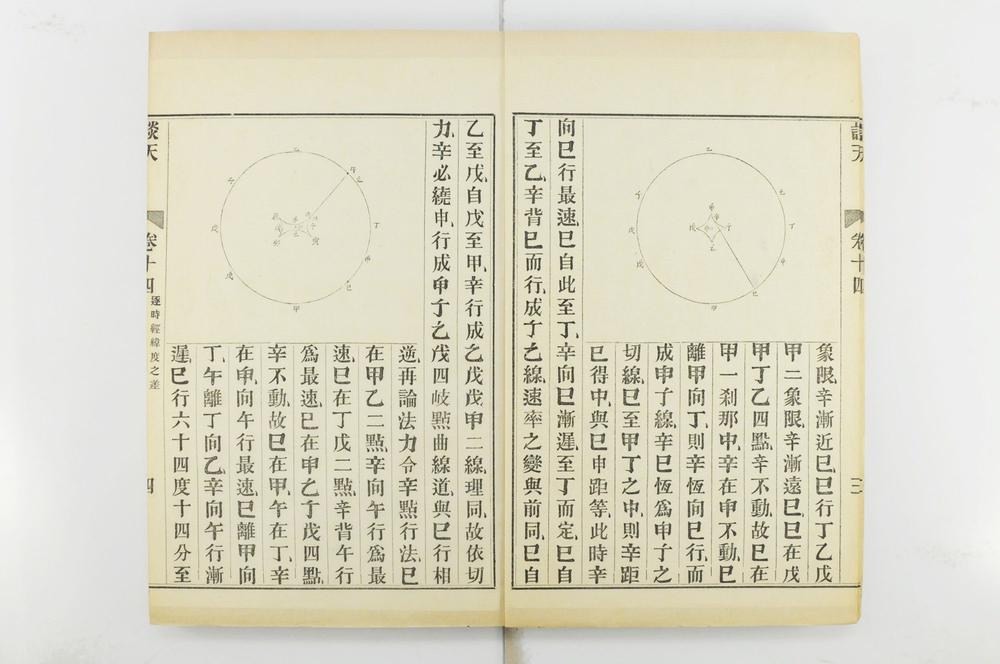 談天
卷十四
三
象限辛漸近巳巳行丁乙戊
甲二象限辛漸遠巳巳在戊
甲丁乙四點辛不動故巳在
甲一刹那中辛在申不動巳
離甲向丁則辛恆向巳行而
成申子線辛巳恆爲申子之
切線巳至甲丁之中則辛距
巳得中與巳申距等此時辛
向巳行最速巳自此至丁辛向巳漸遲至丁而定巳自
丁至乙辛背巳而行成子乙線速率之變與前同巳自
乙至戊自戊至甲辛行成乙戊戊甲二線理同故依切
力辛必繞申行成申子乙戊四歧點曲線道與巳行相
逆再論法力令辛點行法巳
在甲乙二點辛向午行爲最
速巳在丁戊二點辛背午行
爲最速巳在申乙子戊四點
辛不動故巳在甲午在丁辛
在申向午行最速巳離甲向
丁午離丁向乙辛向午行漸
遲巳行六十四度十四分至
談天
卷十四
逐時經緯度之差
四